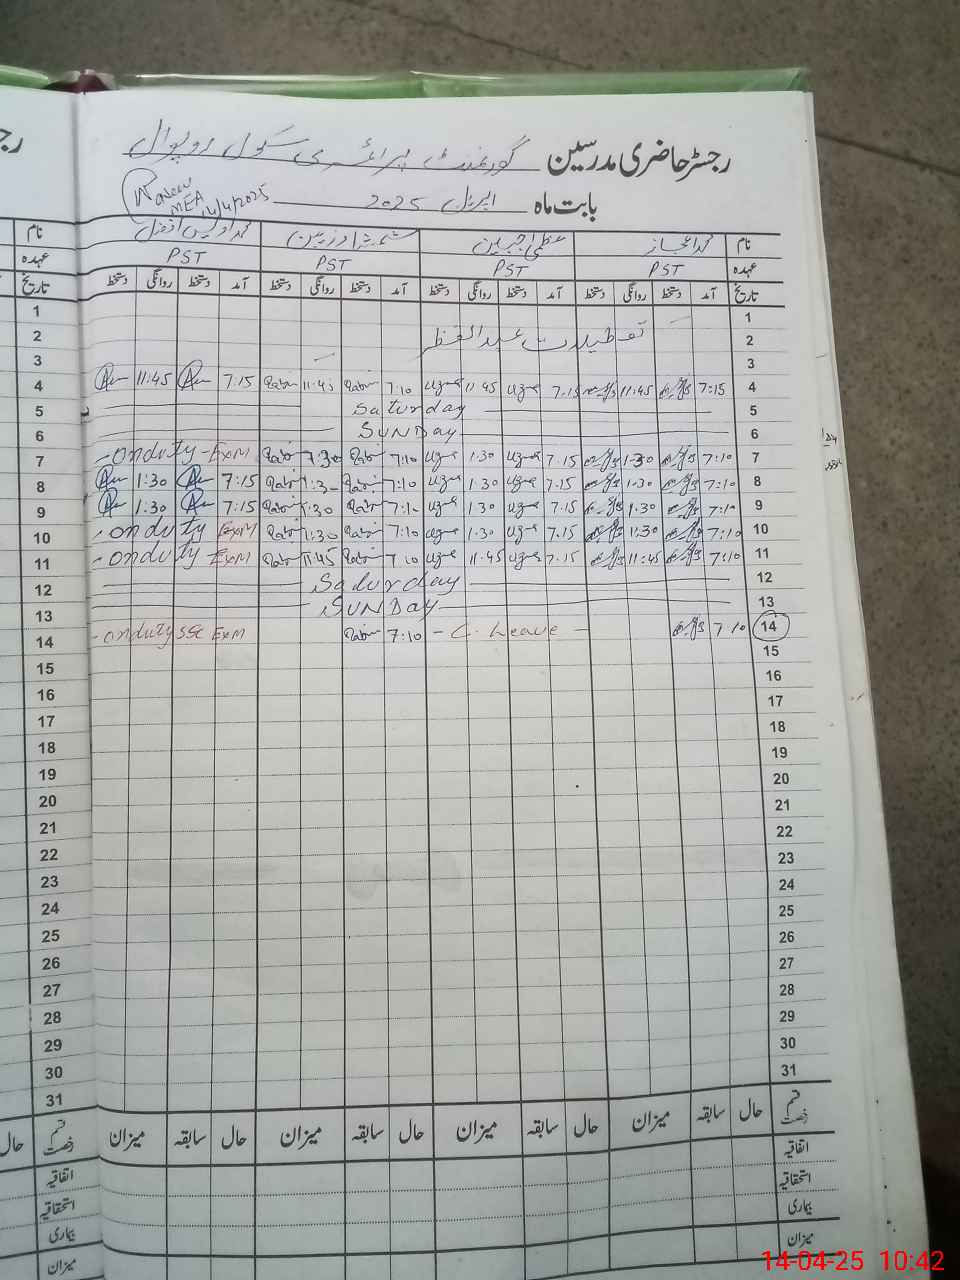 رجسٹر حاضری مدرسین گورنمنٹ پرائمری سکول روپوال
بابت ماہ اپریل 2025
MEA 14/4/2025
نام محمد اعجاز عظمیٰ جبین شمشاد زرین محمد اویس افضل نام
عہدہ PST PST PST PST عہدہ
تاریخ آمد دستخط روانگی دستخط آمد دستخط روانگی دستخط آمد دستخط روانگی دستخط آمد دستخط روانگی دستخط تاریخ
1 1
2 تعطیلات عید الفطر 2
3 3
4 11:45 7:15 11:45 7:10 11:45 7.15 11:45 7:15 4
5 Saturday 5
6 SUNDay 6
7 - onduty - ExM 1:30 7:10 1:30 7.15 1:30 7:10 7
8 1:30 7:15 1:30 7:10 1:30 7.15 1:30 7:10 8
9 1:30 7:15 1:30 7:10 1:30 7.15 1:30 7:10 9
10 - onduty ExM 1:30 7:10 1:30 7.15 1:30 7:10 10
11 - onduty ExM 11:45 7:10 11:45 7.15 11:45 7:10 11
12 Saturday 12
13 SUNDay 13
14 - onduty SSC ExM 7:10 - C. Leave - 7:10 14
15 15
16 16
17 17
18 18
19 19
20 20
21 21
22 22
23 23
24 24
25 25
26 26
27 27
28 28
29 29
30 30
31 31
قسم رخصت حال سابقہ میزان حال سابقہ میزان حال سابقہ میزان حال سابقہ میزان قسم رخصت حال
اتفاقیہ اتفاقیہ
استحقاقیہ استحقاقیہ
بیماری بیماری
میزان میزان
14-04-25 10:42